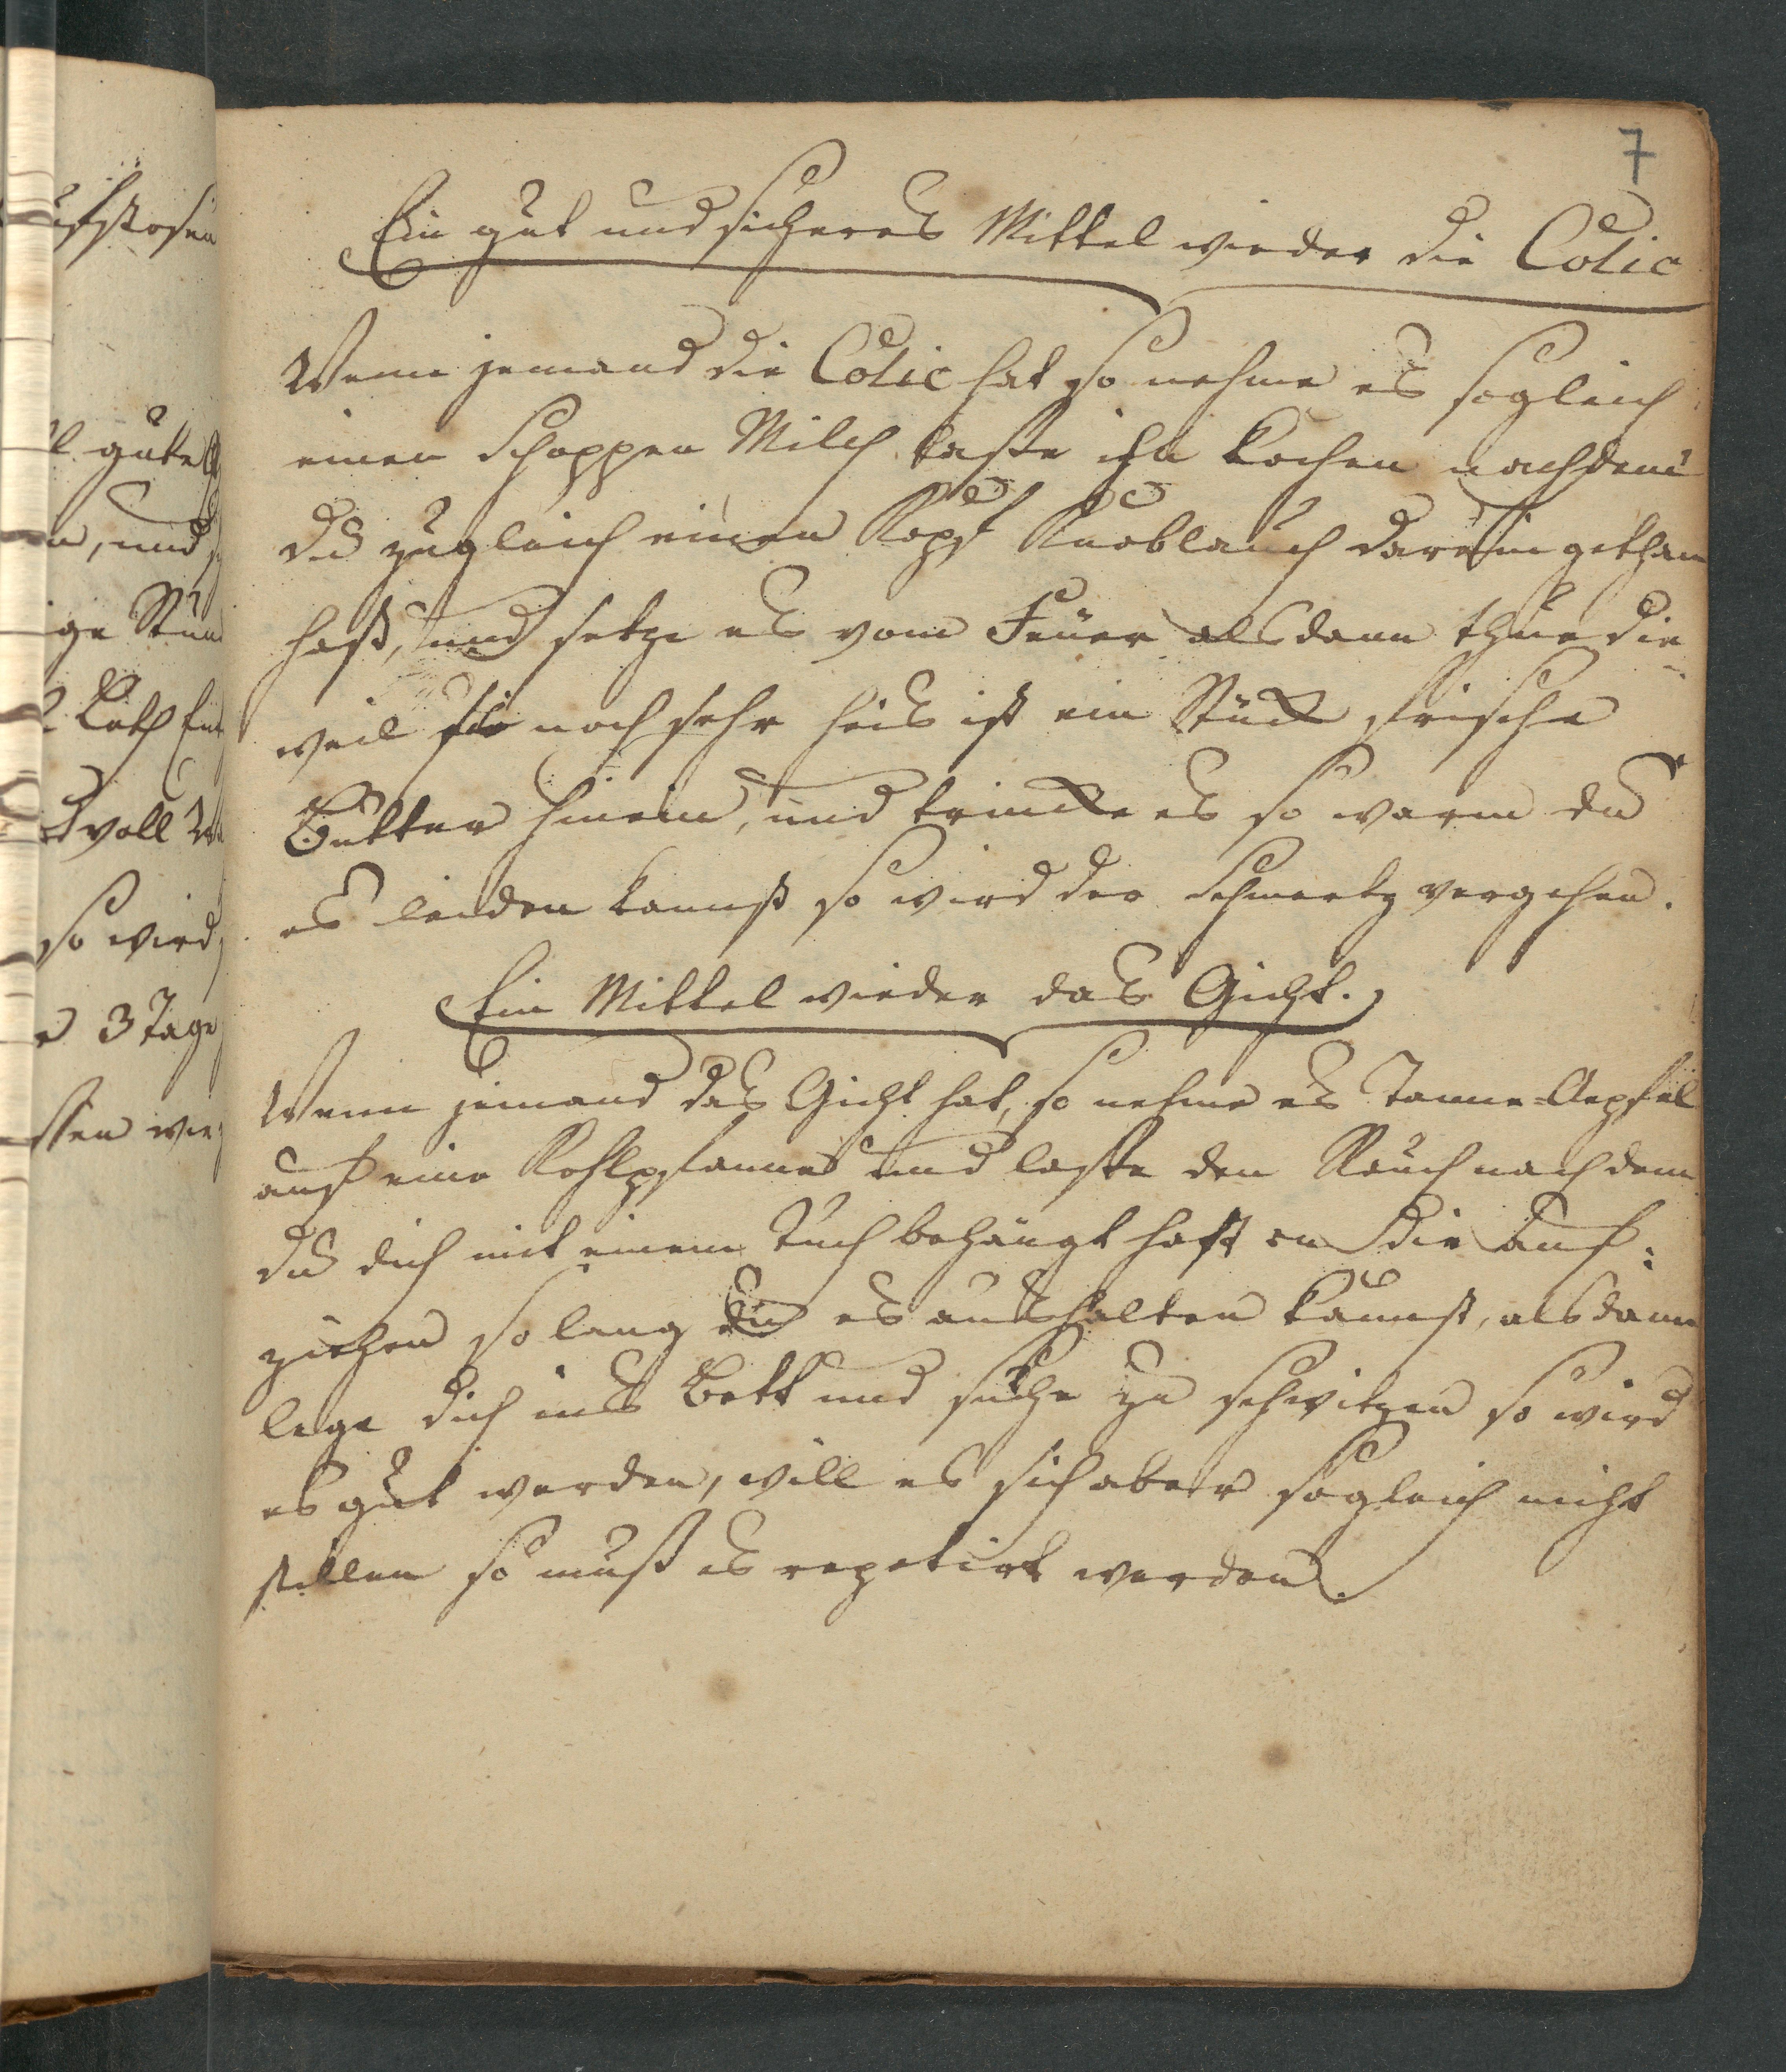 7
Ein gut und sicheres Mittel wieder die Colic
Wenn jemand die Colic hat so nehme es sogleich
einen Schoppen Milch laße ihn kochen nachdem
du zugleich einen Kopf Knoblauch darein gethan
hast, und setze es vom Feuer alsdann thue die
weil sie noch sehr heis ist ein Stück frische
Butter hinein, und trincke es so warm du
es leiden kannst so wird der Schmertz vergehen.
Ein Mittel wieder das Gicht.
Wenn jemand das Gicht hat, so nehme es Tanne-Aepfel
auf eine Kohlpfanne und laße den Rauch nachdem
du dich mit einem Tuch behängt hast an die auf:
ziehen so lang du es aushalten kannst, alsdann
lege dich ins Bett und suche zu schwitzen so wird
es gut werden, will es sich aber sogleich nicht
stillen so muß es repetirt werden.
gute
und
voll
so wird
3 Tage